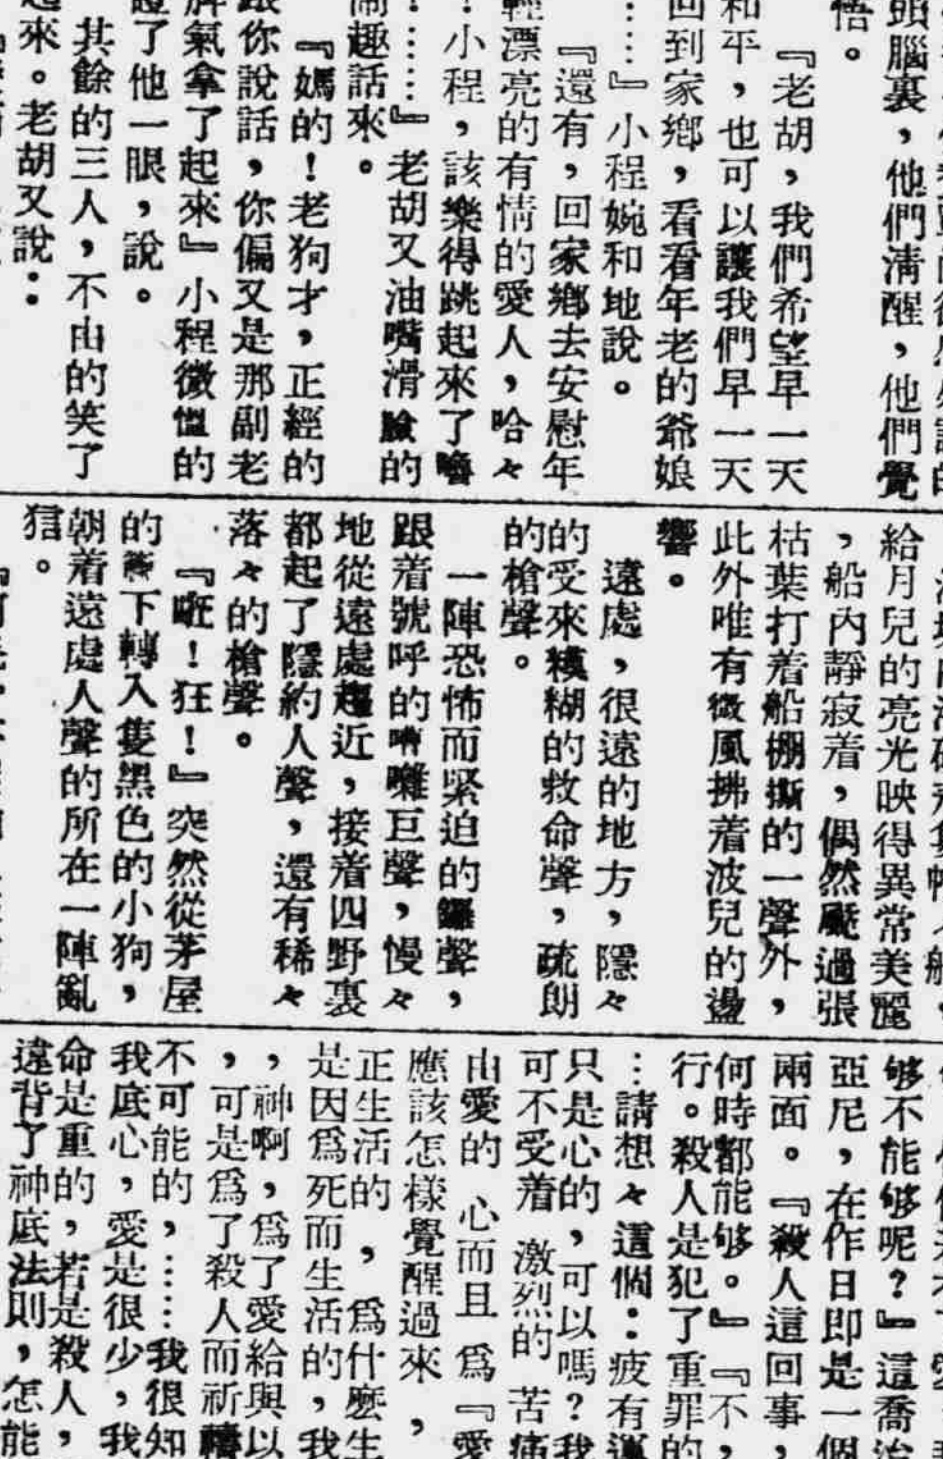 頭腦裏，他們清醒，他們覺
悟。
『老胡，我們希望早一天
和平，也可以讓我們早一天
回到家鄉，看看年老的爺娘
……』小程婉和地說。
『還有，回家鄉去安慰年
輕漂亮的有情的愛人，哈々
！小程，該樂得跳起來了嚕
！……』老胡又油嘴滑臉的
鬧趣話來。
『媽的！老狗才，正經的
跟你說話，你偏又是那副老
脾氣拿了起來』小程微慍的
瞪了他一眼，說。
其餘的三人，不由的笑了
起來。老胡又說：
給月兒的亮光映得異常美麗
，船內靜寂着，偶然飃過張
枯葉打着船棚撕的一聲外，
此外唯有微風拂着波兒的盪
響。
遠處，很遠的地方，隱々
的受來糢糊的救命聲，疏朗
的槍聲。
一陣恐怖而緊迫的鑼聲，
跟着號呼的嘈囃巨聲，慢々
地從遠處趨近，接着四野裏
都起了隱約人聲，還有稀々
落々的槍聲。
『哐！狂！』突然從茅屋
的簷下轉入隻黑色的小狗，
朝着遠處人聲的所在一陣亂
狺。
够不能够呢？』這喬治
亞尼，在作日即是一個
兩面。『殺人這回事，
何時都能够。』『不，
行。殺人是犯了重罪的
…請想々這個：疲有運
只是心的，可以嗎？我
可不受着 激烈的 苦痛
由愛的 心而且 爲『愛
應該怎樣覺醒過來，
正生活的，爲什麼生
是因爲死而生活的，我
，神啊，爲了愛給與以
，可是爲了殺人而祈禱
不可能的，……我很知
我底心，愛是很少，我
命是重的，若是殺人，
違背了神底法則，怎能